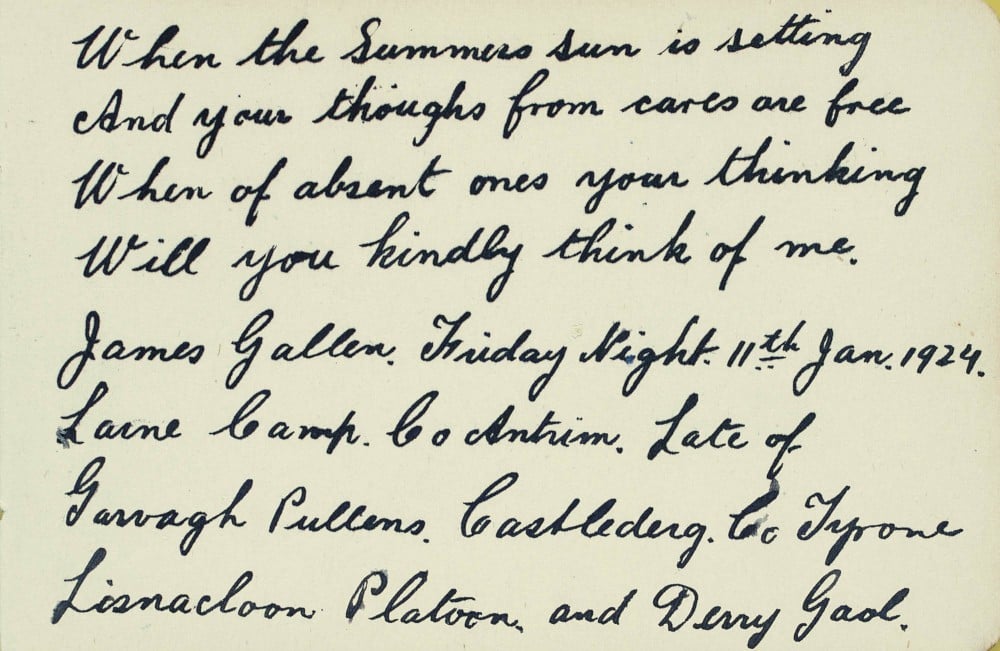 When the Summers sun is setting
And your thoughs from cares are free
When of absent ones your thinking
Will you kindly think of me.
James Gallen. Friday Night. 11th Jan. 1924.
Larne Camp. Co Antrim. Late of
Garvagh Pullens. Castlederg. Co Tyrone
Lisnacloon Platoon. and Derry Gaol.